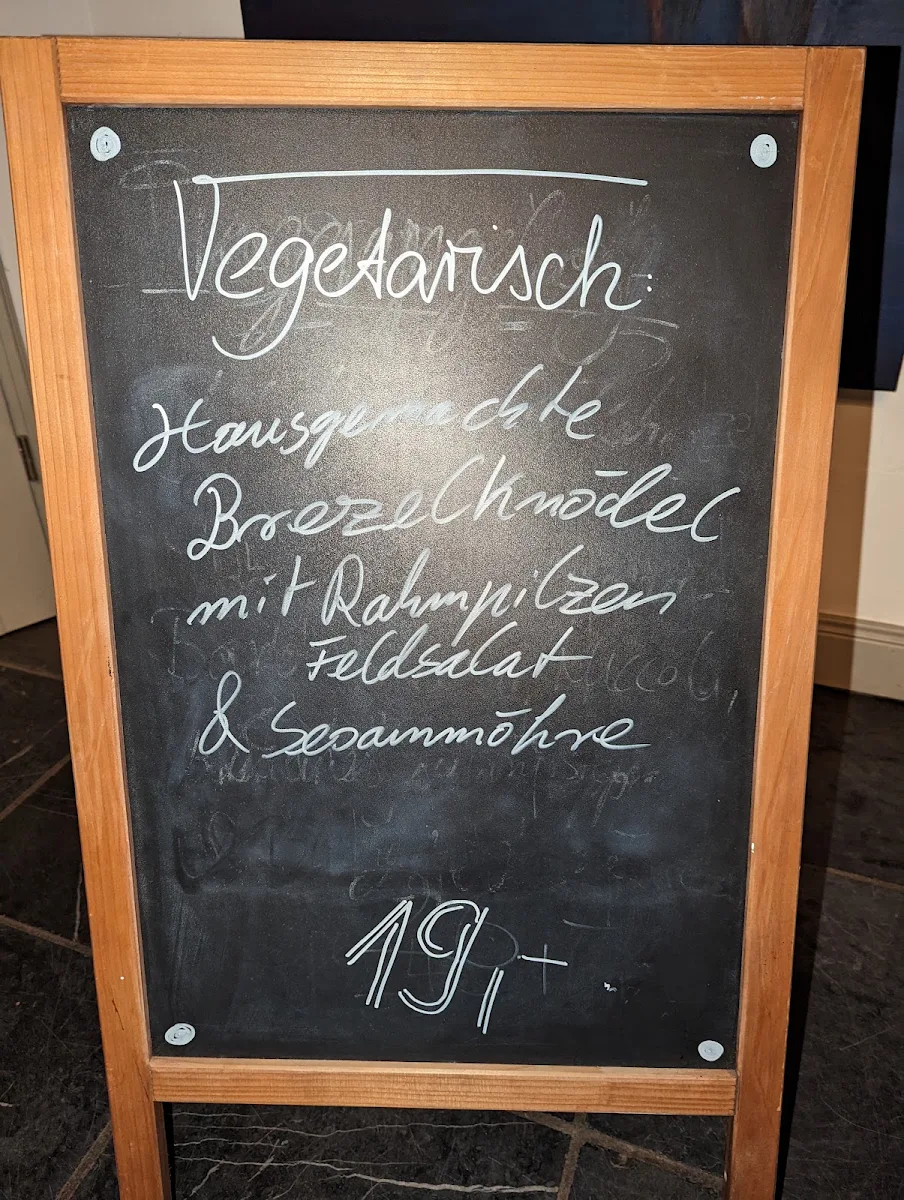 Vegetarisch:
Hausgemachte
Brezelknödel
mit Rahmpilzen
Feldsalat
& Sesammöhre
19,-